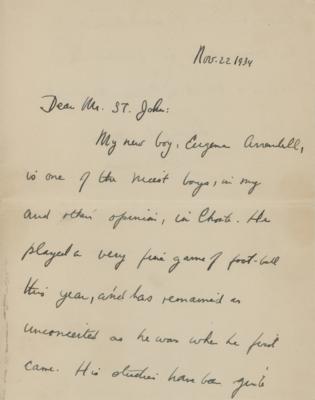 Nov. 22 1934
Dear Mr. St. John:
My new boy, Eugene
is one of the nicest boys, in my
and other's opinion, in Choate. He
played a very fine game of foot-ball
this year, and has remained as
unconceited as he was when he first
came. His studies have been quite